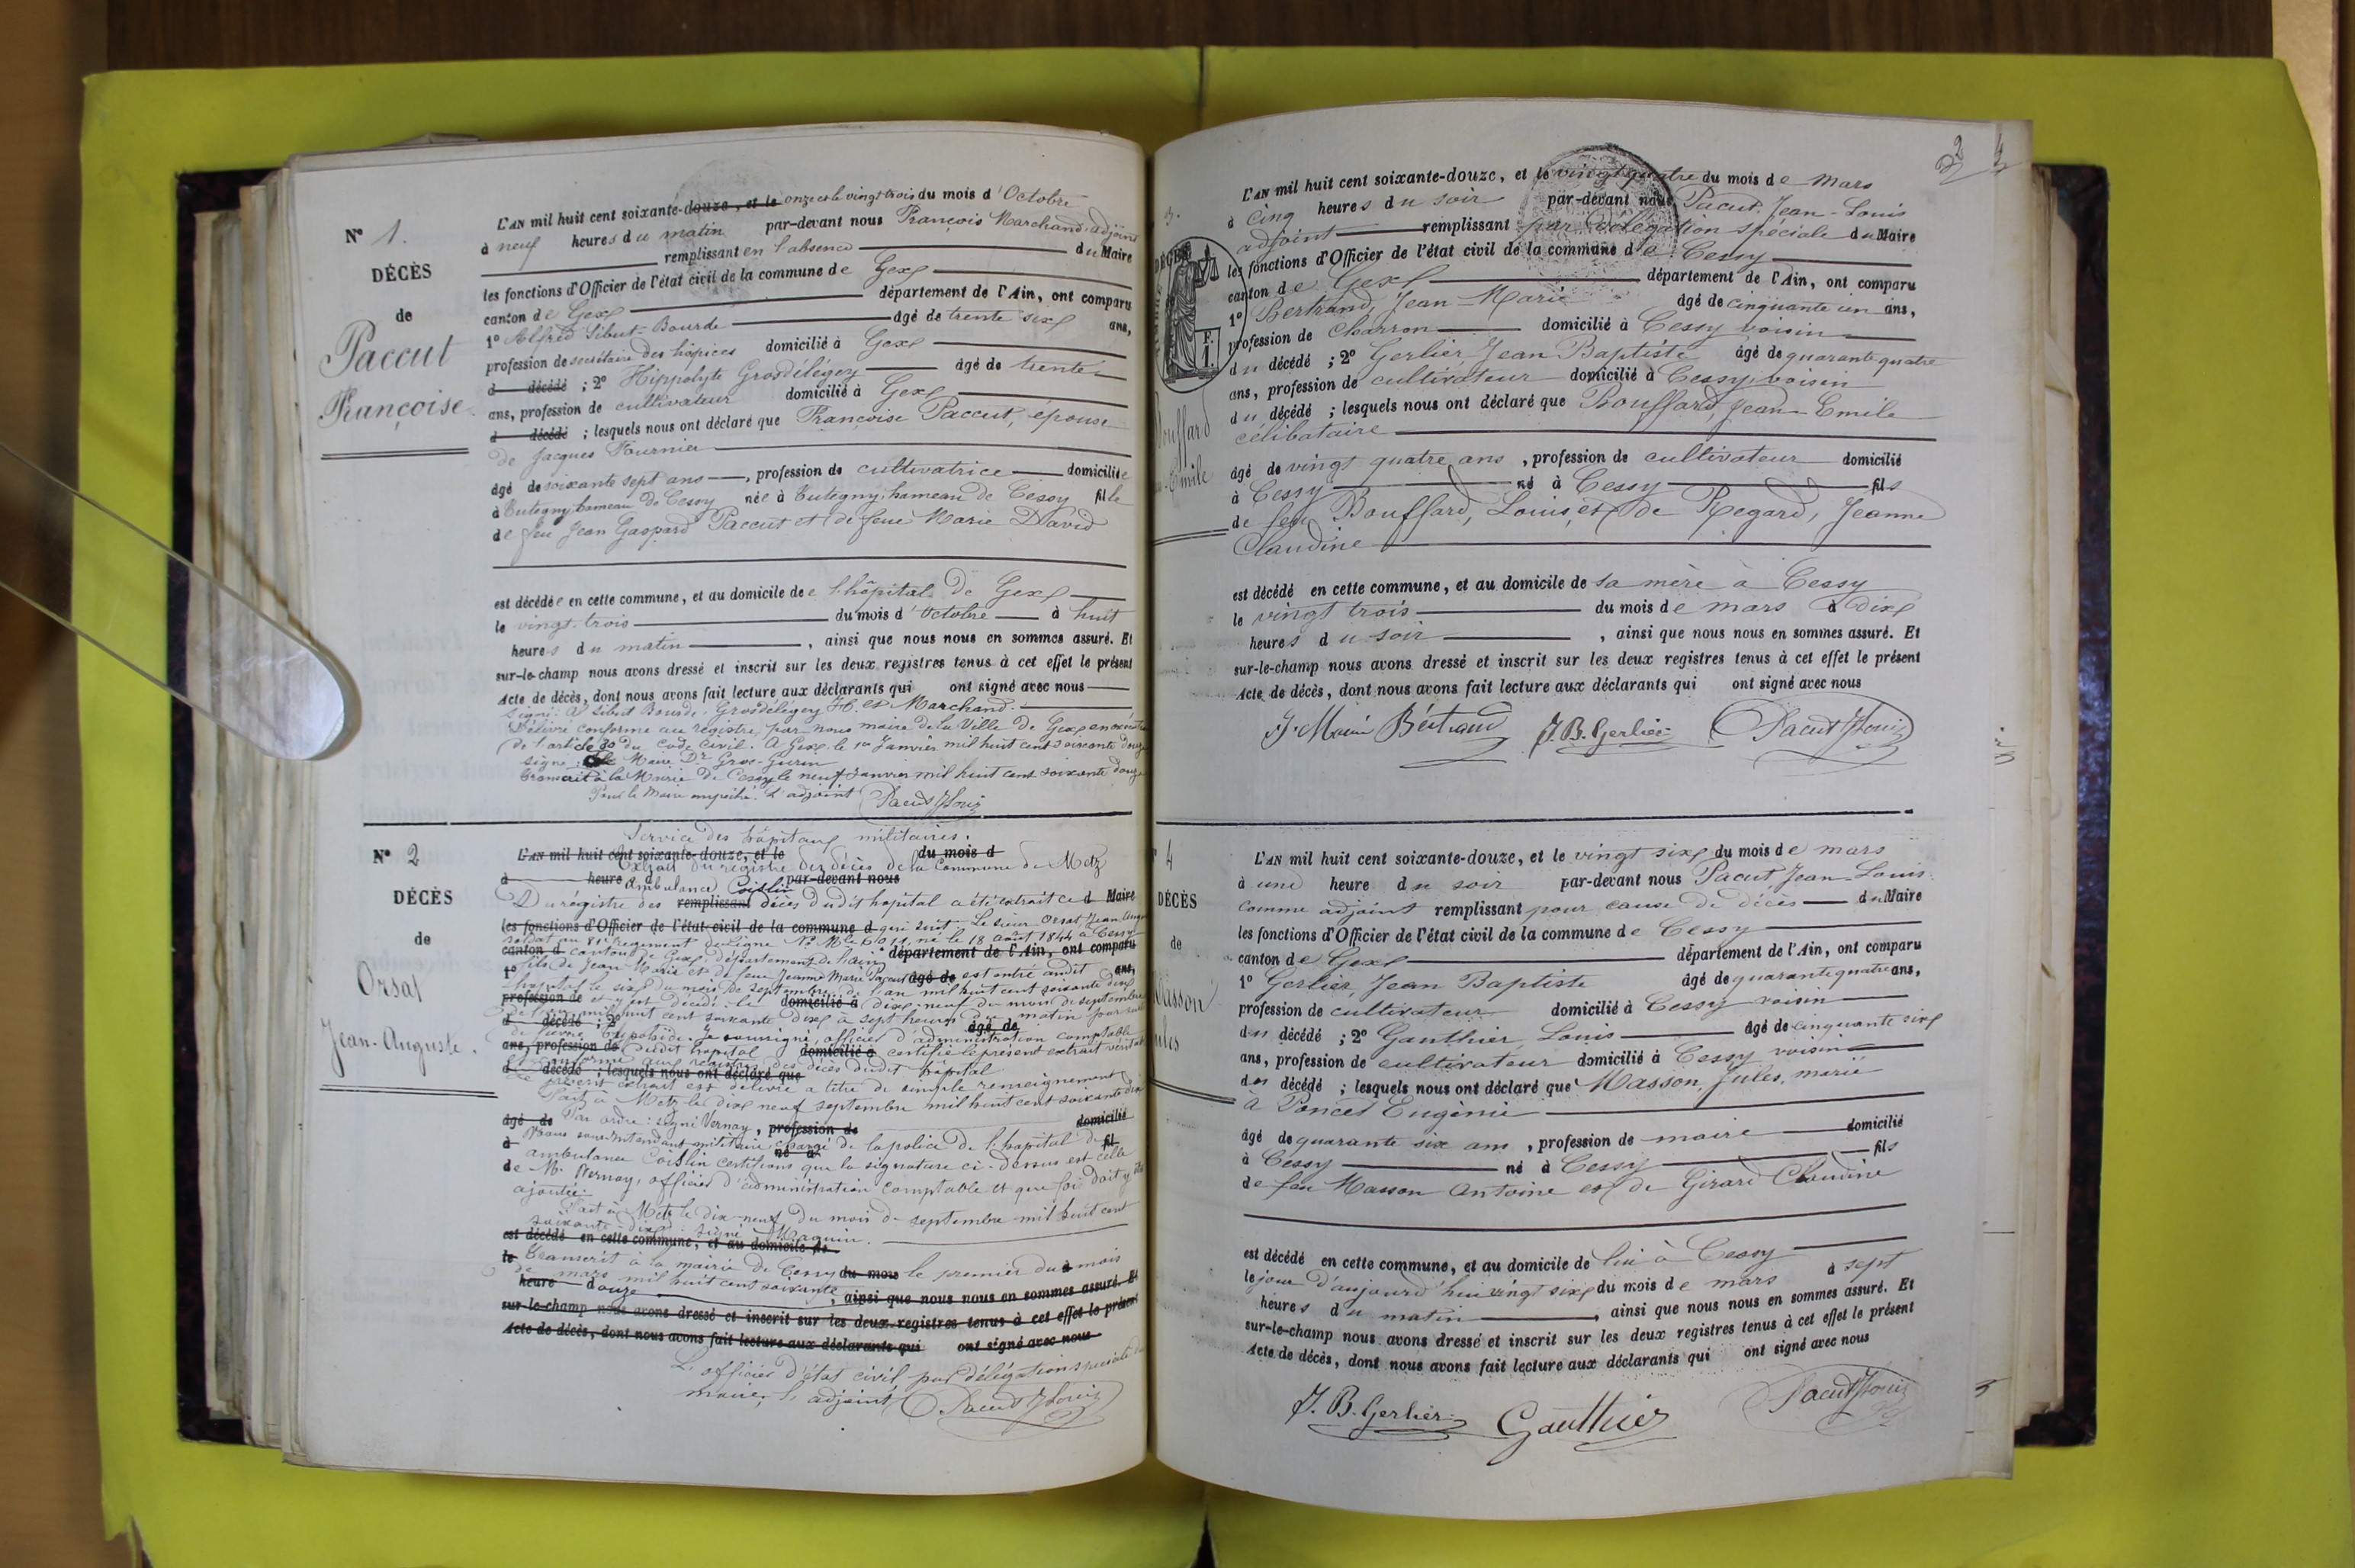 N° 1.
DÉCÈS
de
Paccut
Françoise.
L'AN mil huit cent soixante-douze, et le onze et le vingt trois du mois d'Octobre
à neuf heures du matin par-devant nous François Marchand, adjoint
remplissant en l'absence du Maire
les fonctions d'Officier de l'état civil de la commune de Gex
canton de Gex département de l'Ain, ont comparu
1° Alfred Sibut-Bourde âgé de trente six ans,
profession de secrétaire des hospices domicilié à Gex
d décédé ; 2° Hippolyte Grosdélégey âgé de trente
ans, profession de cultivateur domicilié à Gex
d décédé ; lesquels nous ont déclaré que Françoise Paccut, épouse
de Jacques Fournier
âgé de soixante sept ans, profession de cultivatrice domiciliée
à Tutegny hameau de Cessy née à Tutegny, hameau de Cessy fille
de feu Jean Gaspard Paccut et de feue Marie David
est décédée en cette commune, et au domicile de l'hôpital de Gex
le vingt-trois du mois d'Octobre à huit
heures du matin, ainsi que nous nous en sommes assuré. Et
sur-le-champ nous avons dressé et inscrit sur les deux registres tenus à cet effet le présent
Acte de décès, dont nous avons fait lecture aux déclarants qui ont signé avec nous
signé: A Sibut Bourde, Grosdélégey H. et Marchand.
Délivré conforme au registre, par nous maire de la Ville de Gex en exécution
de l'article 80 du Code civil. A Gex le 1er Janvier mil huit cent soixante douze
signé: Le Maire Dr Gros-Gurin
Transcrit à la Mairie de Cessy le neuf Janvier mil huit cent soixante douze
Pour le Maire empêché. L'adjoint Pacut JLouis
N° 2
DÉCÈS
de
Orsat
Jean-Auguste.
Service des hôpitaux militaires.
L'AN mil huit cent soixante-douze, et le du mois d
Extrait du registre des décès de la Commune de Metz
à heure d par-devant nous
Ambulance Coislin
Du régistre des remplissant décès dudit hôpital a été extrait ce d Maire
les fonctions d'Officier de l'état civil de la commune d qui suit. Le sieur Orsat, Jean, Auguste
soldat au 81e régiment de ligne N° Mle 6011, né le 18 août 1844 à Cessy
canton d canton de Gex département de l'Ain, département de l'Ain, ont comparu
1° fils de Jean Marie et de feue Jeanne Marie âgé de est entré audit ans,
hôpital le six du mois de septembre de l'an mil huit cent soixante dix
profession de et y est décédé le domicilié à dix-neuf du mois de septembre
de l'an mil huit cent soixante dix à sept heures du matin par suite
d décédé ; 2° âgé de
fièvre typhoïde. Je soussigné, officier d'administration comptable
ans, profession de dudit hôpital domicilié à certifie le présent extrait véritable
et conforme aux registres des décès dudit hôpital
d décédé ; lesquels nous ont déclaré que
Le présent extrait est délivré à titre de simple renseignement
Fait à Metz le dix neuf septembre mil huit cent soixante dix
âgé de Par ordre: signé Vernay, profession de domicilié
Nous sous-intendant militaire chargé de la police de l'hôpital de
à né à fil
ambulance Coislin certifions que la signature ci-dessus est celle
de M. Vernay, officier d'administration comptable et que foi doit y être
ajoutée.
Fait à Metz le dix-neuf du mois de septembre mil huit cent
soixante-dix. signé Maquin.
est décédé en cette commune, et au domicile de
le Transcrit à la mairie de Cessy du mois le premier du mois
de mars mil huit cent soixante
heure d douze, ainsi que nous nous en sommes assuré. Et
sur-le-champ nous avons dressé et inscrit sur les deux registres tenus à cet effet le présent
Acte de décès, dont nous avons fait lecture aux déclarants qui ont signé avec nous
L'officier d'état civil par délégation spéciale du
maire, l'adjoint Pacut JLouis
2
3.
DÉCÈS
Bouffard
Emile
F.
1.
L'AN mil huit cent soixante-douze, et le vingt quatre du mois de mars
à cinq heures du soir par-devant nous Pacut, Jean-Louis
adjoint remplissant par délégation spéciale du Maire
les fonctions d'Officier de l'état civil de la commune de Cessy
canton de Gex département de l'Ain, ont comparu
1° Bertrand, Jean-Marie âgé de cinquante un ans,
profession de Charron domicilié à Cessy voisin
du décédé ; 2° Gerlier Jean Baptiste âgé de quarante quatre
ans, profession de cultivateur domicilié à Cessy, voisin
du décédé ; lesquels nous ont déclaré que Bouffard, Jean-Emile
célibataire
âgé de vingt quatre ans, profession de cultivateur domicilié
à Cessy né à Cessy fils
de feu Bouffard, Louis, et de Regard, Jeanne
Claudine
est décédé en cette commune, et au domicile de sa mère à Cessy
le vingt trois du mois de mars à dix
heures du soir, ainsi que nous nous en sommes assuré. Et
sur-le-champ nous avons dressé et inscrit sur les deux registres tenus à cet effet le présent
Acte de décès, dont nous avons fait lecture aux déclarants qui ont signé avec nous
J. Marie Bertrand J. B. Gerlier Pacut JLouis
4
DÉCÈS
de
Masson
Jules
L'AN mil huit cent soixante-douze, et le vingt six du mois de mars
à une heure du soir par-devant nous Pacut Jean-Louis
comme adjoint remplissant pour cause de décès du Maire
les fonctions d'Officier de l'état civil de la commune de Cessy
canton de Gex département de l'Ain, ont comparu
1° Gerlier, Jean Baptiste âgé de quarante quatre ans,
profession de cultivateur domicilié à Cessy voisin
du décédé ; 2° Gauthier, Louis âgé de cinquante six
ans, profession de cultivateur domicilié à Cessy voisin
du décédé ; lesquels nous ont déclaré que Masson, Jules, marié
à Poncet Eugénie
âgé de quarante six ans, profession de maire domicilié
à Cessy né à Cessy fils
de feu Masson Antoine et de Girard Claudine
est décédé en cette commune, et au domicile de lui à Cessy
le jour d'aujourd'hui vingt six du mois de mars à sept
heures du matin, ainsi que nous nous en sommes assuré. Et
sur-le-champ nous avons dressé et inscrit sur les deux registres tenus à cet effet le présent
Acte de décès, dont nous avons fait lecture aux déclarants qui ont signé avec nous
J. B. Gerlier Gauthier Pacut JLouis